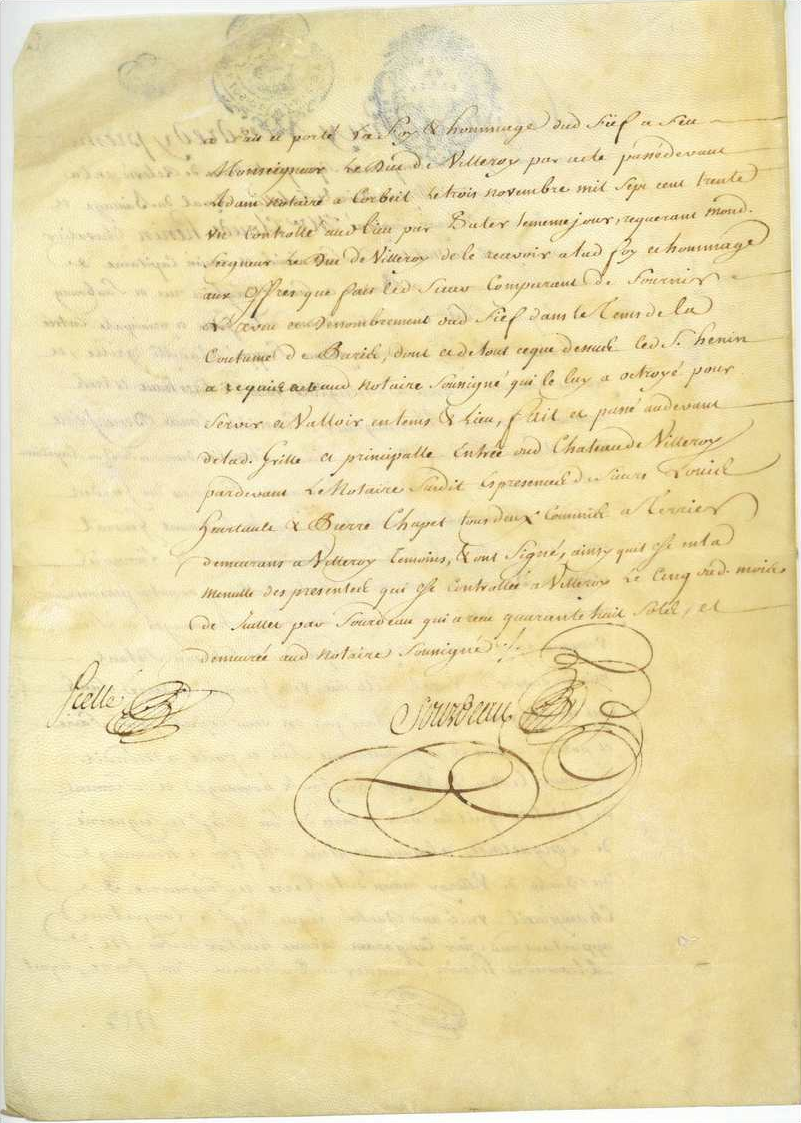 a fait et porté La foy & hommage dud fief a feu
Monseigneur Le Duc de Villeroy par acte passé devant
Adam notaire a Corbeil Le trois novembre mil sept cent trente
un Controllé aud Lieu par le meme jour, requerant mond.
Seigneur Le Duc de Villeroy de le recevoir a lad foy et hommage
aux offres que fait led Sieur Comparant de fournir
L'aveu et Denombrement dud fief dans le Tems de la
Coutume de Paris, dont et de tout ce que dessus led S.r henin
a requis acte aud Notaire Soussigné qui le luy a octroyé pour
Servir et Valloir en tems & Lieu, fait et passé audevant
de lad. Grille et principalle Entrée dud Chateau de Villeroy
pardevant Le Notaire Susdit Es presences de Sieurs Louis
& Pierre Chapet tous deux Commis a Terrier
demeurans a Villeroy Temoins, & ont Signé, ainsy quil est en la
Minutte des presentes qui est Controllée a Villeroy Le Cinq dud. mois
de Juillet par Sourdeau qui a recu quarante huit Sols, et
demeurée aud Notaire Soussigné ./.
Sourdeau